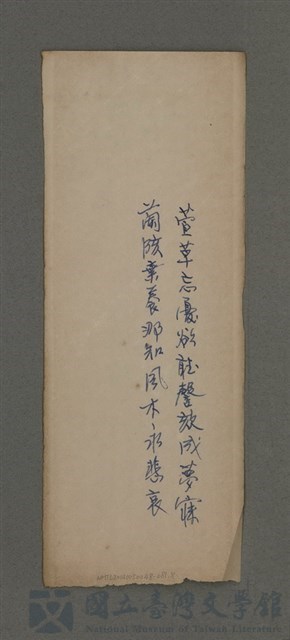 萱草忘憂欲聽聲欬成夢寐
蘭陔業養那知風木永悲哀
國立臺灣文學館
National Museum of Taiwan Literature